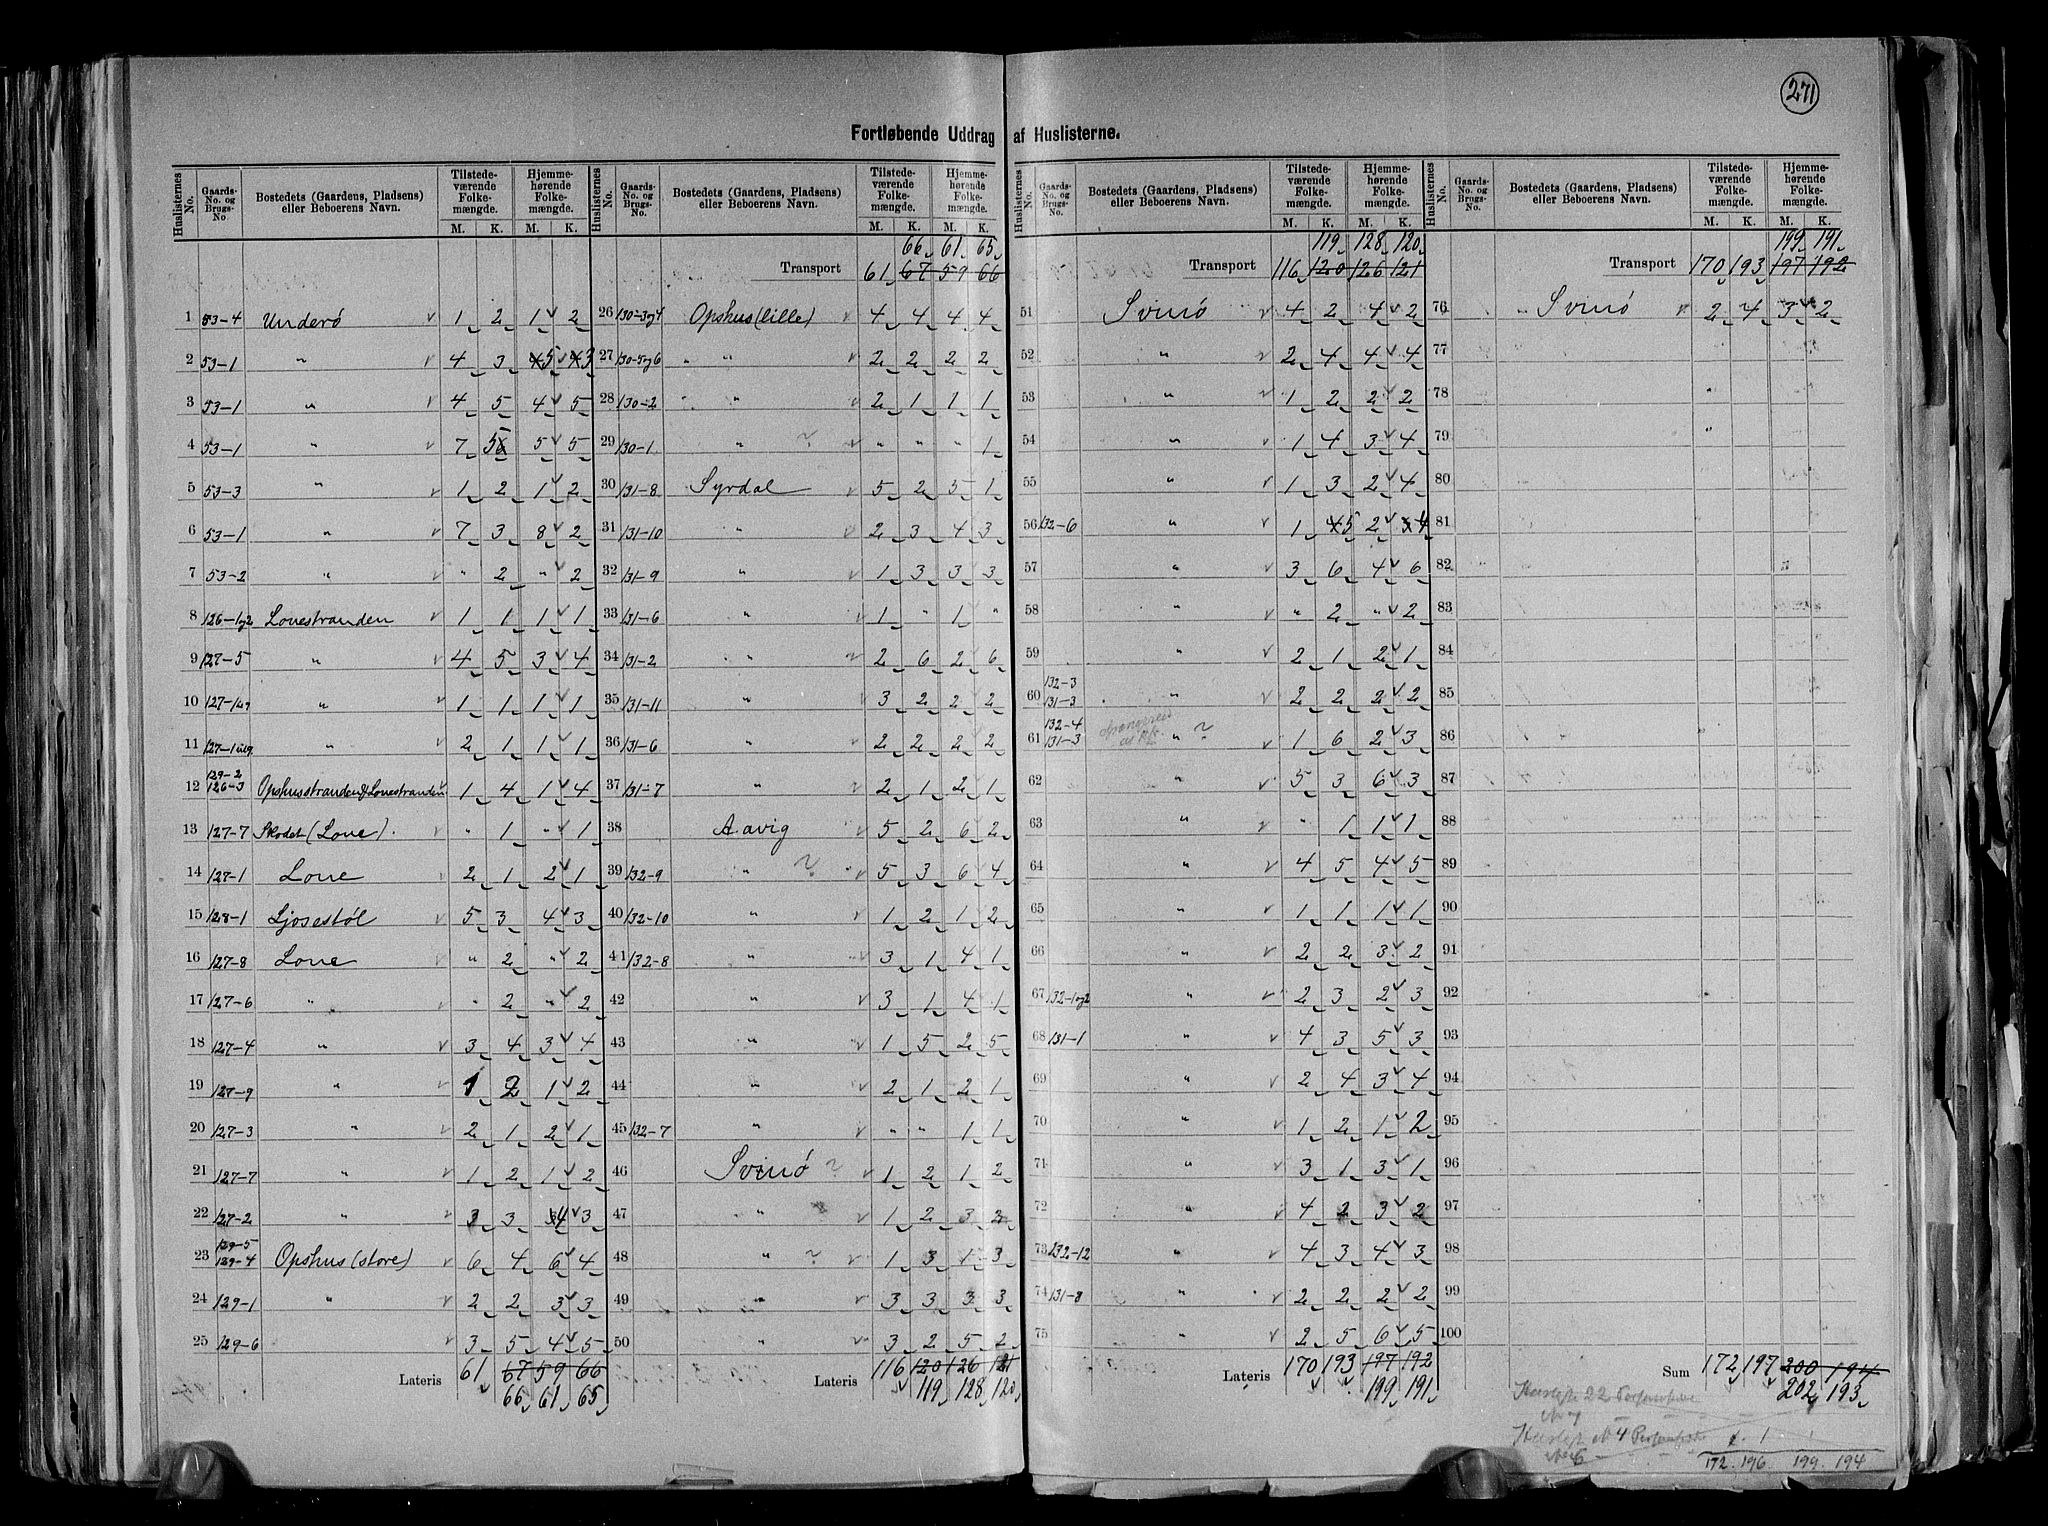 271
Fortløbende Uddrag af Huslisterne.
Huslisternes No. | Gaards-No. og Brugs-No. | Bostedets (Gaardens, Pladsens) eller Beboerens Navn. | Tilstedeværende Folkemængde. M. K. | Hjemmehørende Folkemængde. M. K.
1 53-4 Underö 1 2 1 2
2 53-1 " 4 3 5 3
3 53-1 " 4 5 4 5
4 53-1 " 7 5 5 5
5 53-3 " 1 2 1 2
6 53-1 " 7 3 8 2
7 53-2 " " 2 " 2
8 126-1og2 Lonestranden 1 1 1 1
9 127-5 " 4 5 3 4
10 127- " 1 1 1 1
11 127-1 " 2 1 1 1
12 129-2 126-3 Opshusstranden & Lonestranden 1 4 1 4
13 127-7 Skodet (Lone). " 1 " 1
14 127-1 Lone 2 1 2 1
15 128-1 Ljosestöl 5 3 4 3
16 127-8 Lone " 2 " 2
17 127-6 " " 2 " 2
18 127-4 " 3 4 3 4
19 127-9 " 1 2 1 2
20 127-3 " 2 1 2 1
21 127-7 " 1 2 1 2
22 127-2 " 3 3 4 3
23 129-5 129-4 Opshus (store) 6 4 6 4
24 129-1 " 2 2 3 3
25 129-6 3 5 4 5
Lateris 61 67 59 66
66 61 65
66 61 65
Transport 61 67 59 66
26 130-3og4 Opshus (lille) 4 4 4 4
27 130-5og6 " " 2 2 2 2
28 130-2 " " 2 1 1 1
29 130-1 " ? " " " 1
30 131-8 Syrdal 5 2 5 1
31 131-10 " 2 3 4 3
32 131-9 " 1 3 3 3
33 131-6 " 1 " 1 "
34 131-2 " 2 6 2 6
35 131-11 " 3 2 2 2
36 131-6 " 2 2 2 2
37 131-7 " 2 1 2 1
38 Aavig 5 2 6 2
39 132-9 " ? 5 3 6 4
40 132-10 " 1 2 1 2
41 132-8 " 3 1 4 1
42 " 3 1 4 1
43 " 1 5 2 5
44 " 2 1 2 1
45 132-7 " " " 1 1
46 Svinö ? 1 2 1 2
47 " 1 2 3 2
48 " ? 1 3 1 3
49 " 3 3 3 3
50 " 3 2 5 2
Lateris 116 120 126 121
119 128 120
119 128 120
Transport 116 120 126 121
51 Svinö 4 2 4 2
52 " 2 4 4 4
53 " 1 2 2 2
54 " 1 4 3 4
55 " 1 3 2 4
56 132-6 " 1 5 2 4
57 " 3 6 4 6
58 " " 2 " 2
59 " 2 1 2 1
60 132-3 131-3 " 2 2 2 2
61 132-4 131-3 " ? 1 6 2 3
62 " 5 3 6 3
63 " " 1 1 1
64 " 4 5 4 5
65 " 1 1 1 1
66 " 2 2 3 2
67 132-1og2 " 2 3 2 3
68 131-1 " 4 3 5 3
69 " 2 4 3 4
70 " 1 2 1 2
71 " 3 1 3 1
72 " 4 2 3 2
73 132-12 " 4 3 4 3
74 131-8 " 2 2 2 2
75 " 2 5 6 5
Lateris 170 193 197 192
199 191
199 191
Transport 170 193 197 192
76 " Svinö 2 4 3 2
77
78
79
80
81
82
83
84
85
86
87
88
89
90
91
92
93
94
95
96
97
98
99
100
Sum 172 197 200 194
202 193
172. 196. 199. 194